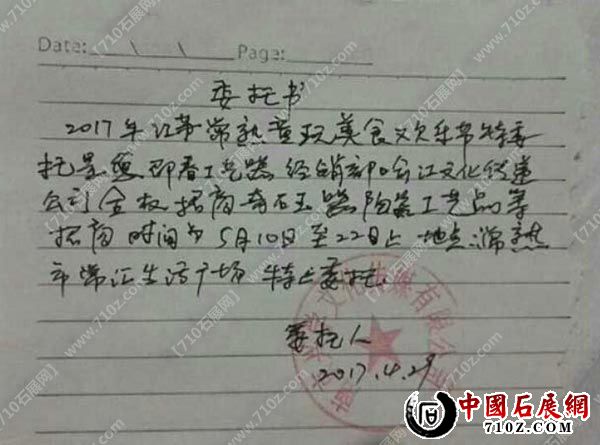 Date: \ \ Page:
委托书
2017年江苏常熟赏玩美食文欢乐节特委
托 印春工艺 经销部 江文化传
公司全权招商奇石玉器陶瓷工艺品等
招商 时间为5月10日至22日止 地点:常熟
市常江生活广场 特此委托
委托人
2017.4.29
文化传媒有限公司
中國石展網
710z.COM
【710石展网】www.710z.com